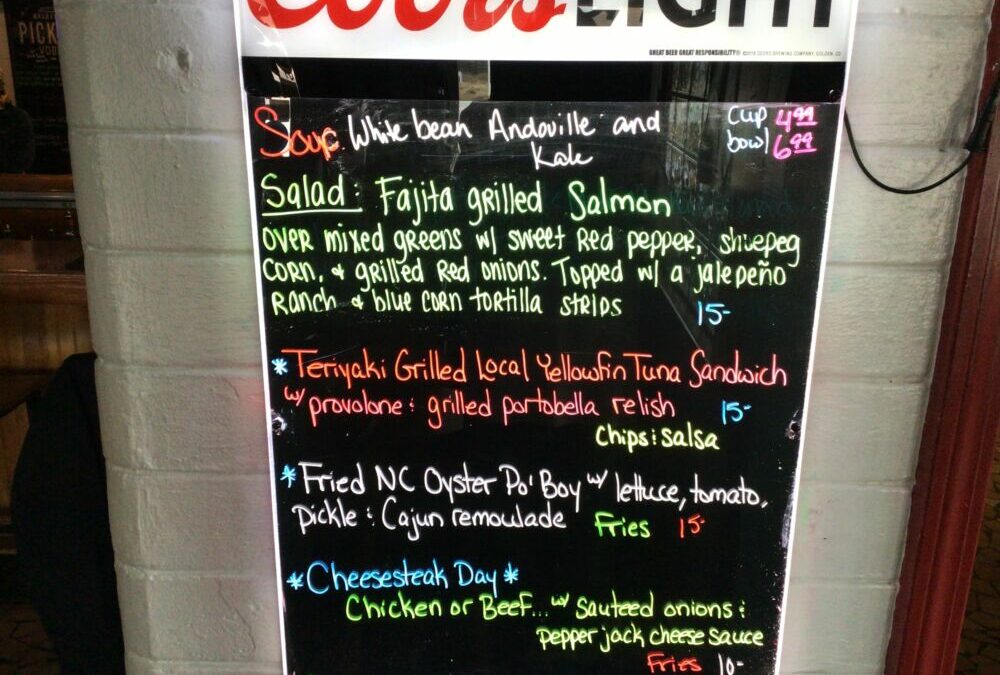 PICK
Coors LIGHT
GREAT BEER GREAT RESPONSIBILITY® ©2018 COORS BREWING COMPANY, GOLDEN, CO
Soup: White bean Andouille and Kale
Cup 4.99
bowl 6.99
Salad: Fajita grilled Salmon
over mixed greens w/ sweet Red pepper, shoepeg
corn, & grilled Red onions. Topped w/ a jalepeño
Ranch & blue corn tortilla strips 15-
*Teriyaki Grilled Local Yellowfin Tuna Sandwich
w/ provolone & grilled portobella relish 15-
Chips & salsa
*Fried NC Oyster Po' Boy w/ lettuce, tomato,
pickle & Cajun remoulade Fries 15-
*Cheesesteak Day*
Chicken or Beef... w/ sauteed onions &
pepper jack cheese sauce
Fries 10-